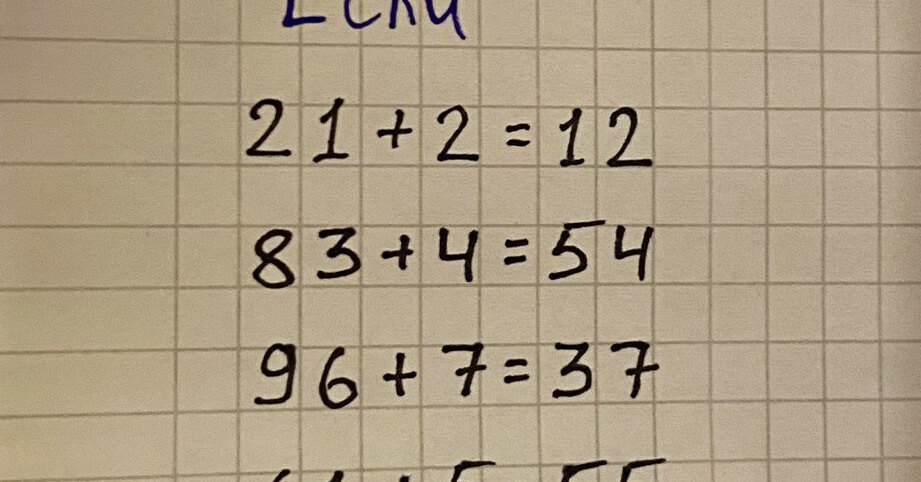 Если
21+2=12
83+4=54
96+7=37